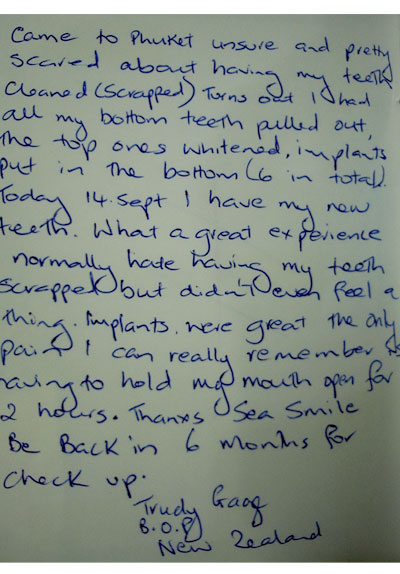 Came to Phuket unsure and pretty
scared about having my teeth
cleaned (scrapped) Turns out I had
all my bottom teeth pulled out,
the top ones whitened, implants
put in the bottom (6 in total).
Today 14. Sept I have my new
teeth. What a great experience
normally hate having my teeth
scrapped but didn't even feel a
thing. Implants. were great the only
pain I can really remember is
having to hold my mouth open for
2 hours. Thanxs Sea Smile
Be Back in 6 months for
check up.
Trudy
B.O.P
New Zealand